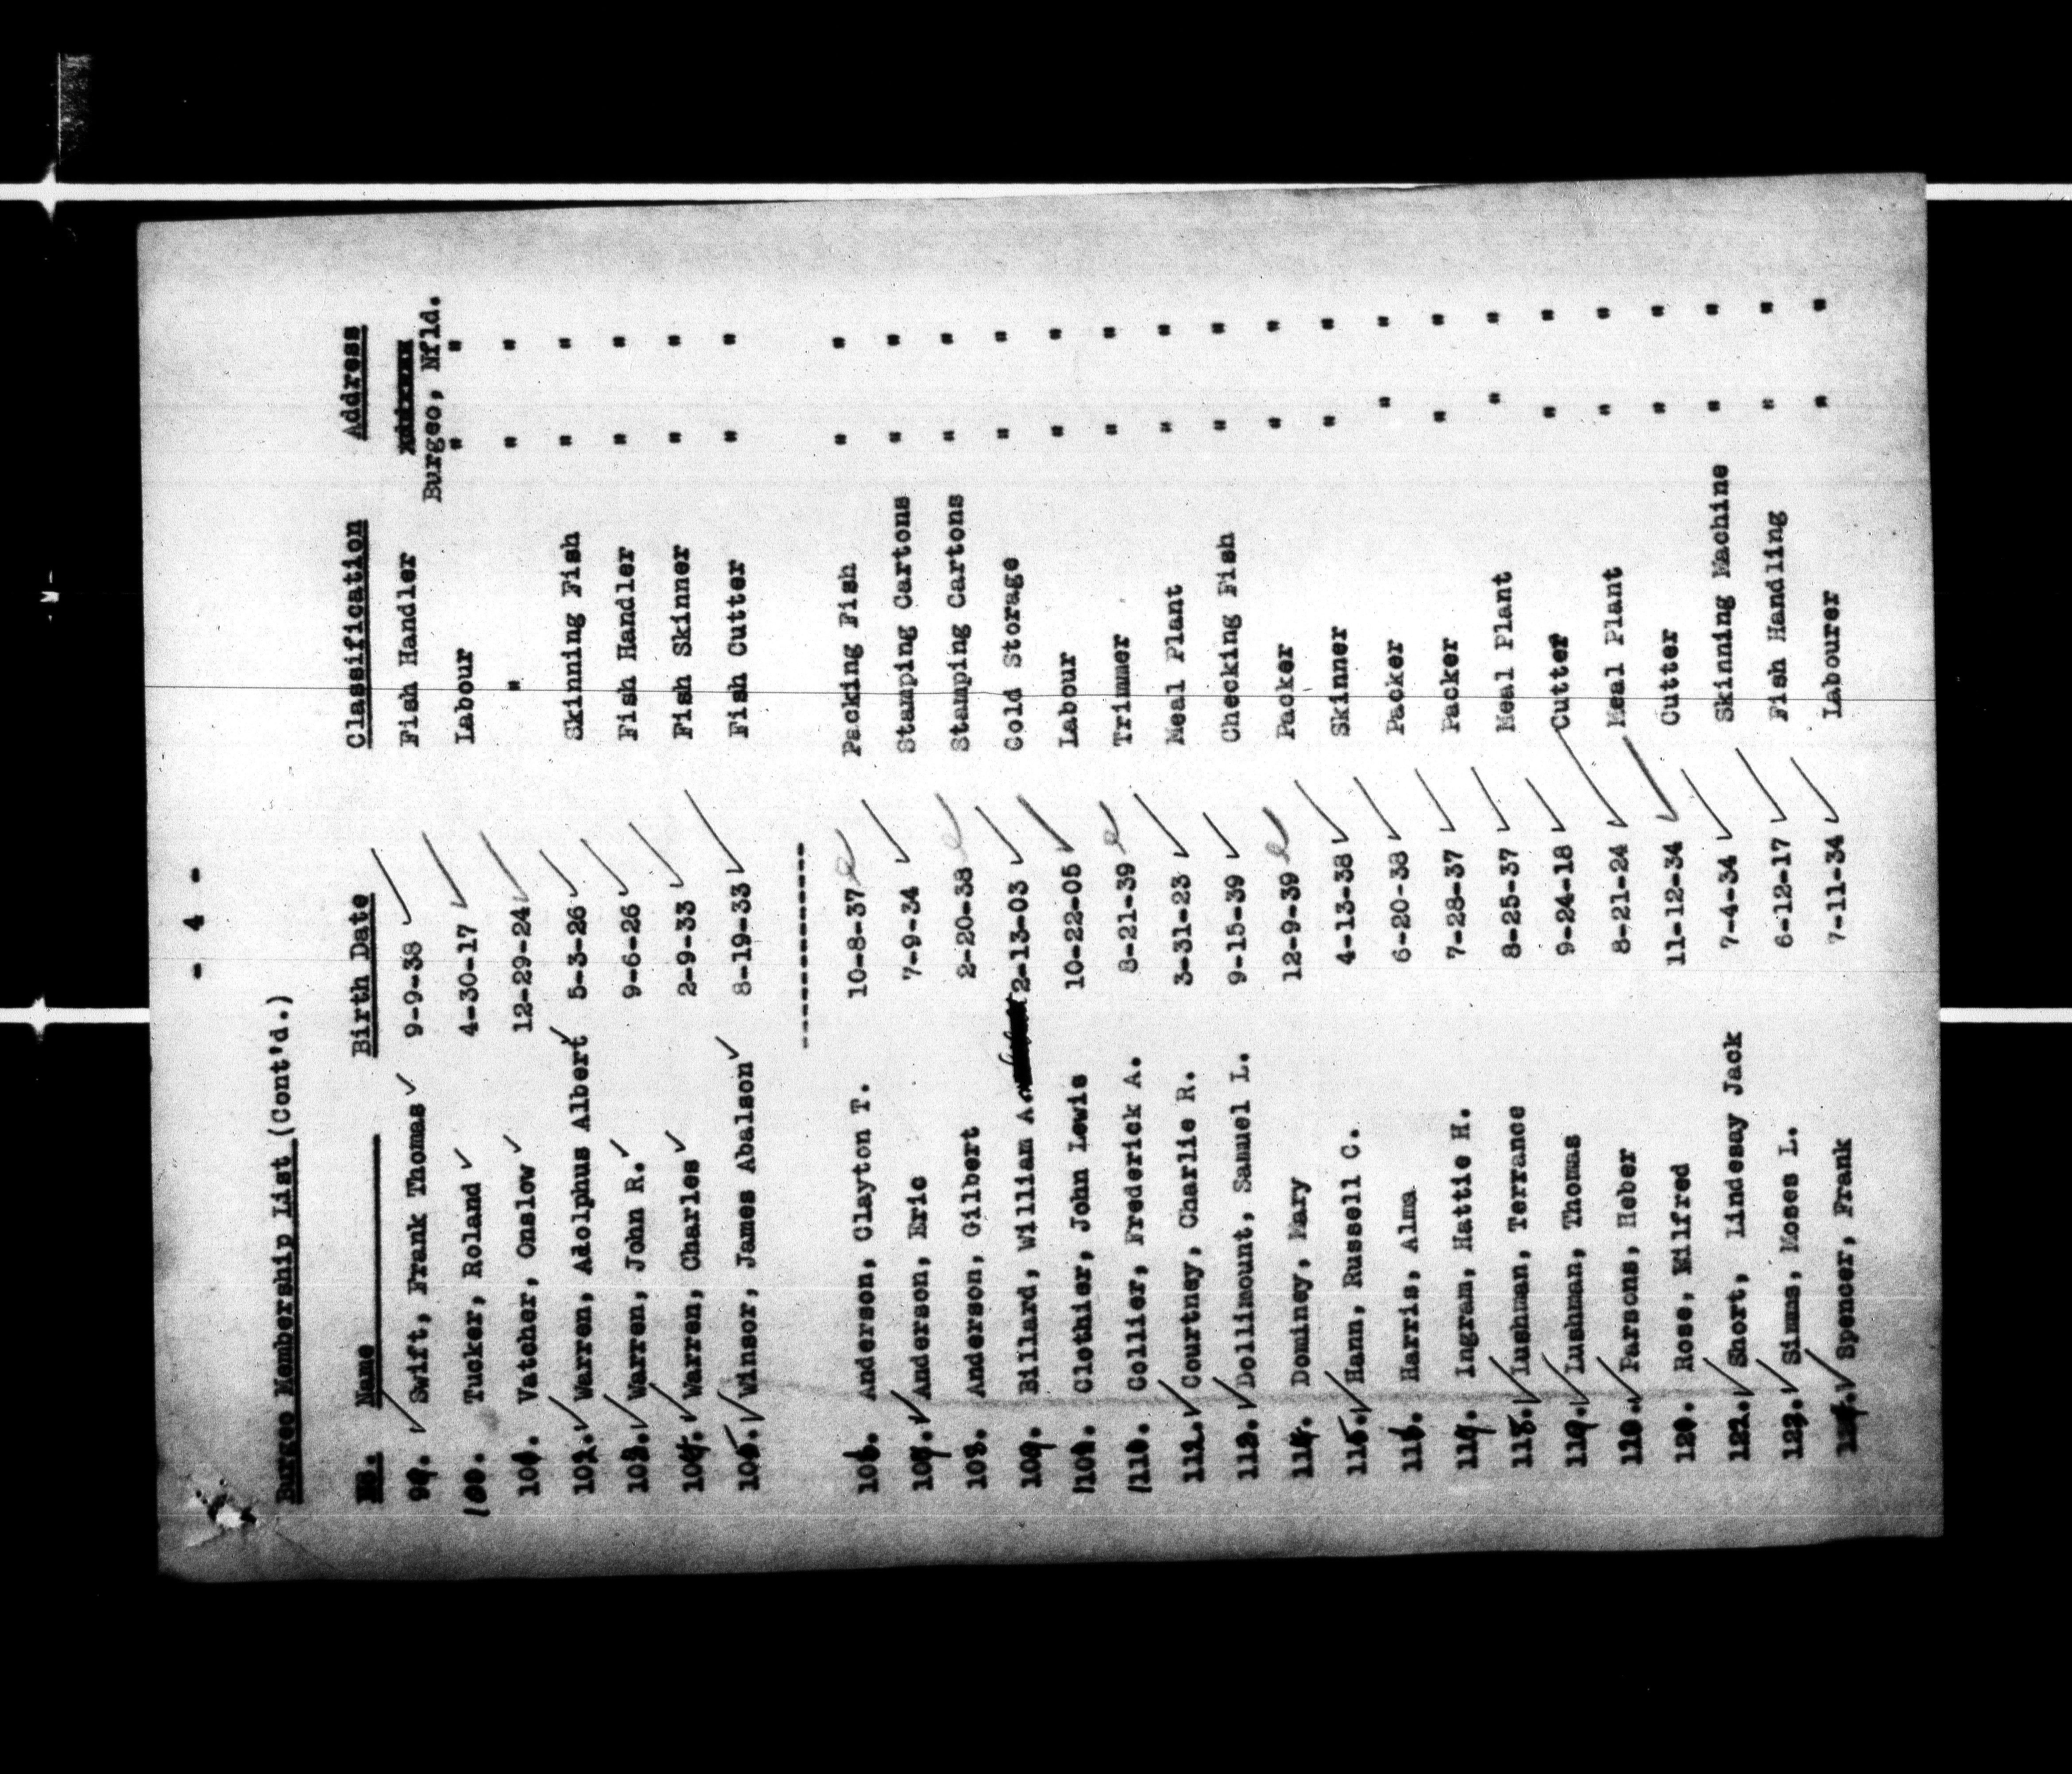 - 4 -
Burgeo Membership List (Cont'd.)
No. Name Birth Date Classification Address
99. Swift, Frank Thomas 9-9-38 Fish Handler
Burgeo, Nfld.
100. Tucker, Roland 4-30-17 Labour " "
101. Vatcher, Onslow 12-29-24 " " "
102. Warren, Adolphus Albert 5-3-26 Skinning Fish " "
103. Warren, John R. 9-6-26 Fish Handler " "
104. Warren, Charles 2-9-33 Fish Skinner " "
105. Winsor, James Abalson 8-19-33 Fish Cutter " "
------------
106. Anderson, Clayton T. 10-8-37 Packing Fish " "
107. Anderson, Eric 7-9-34 Stamping Cartons " "
108. Anderson, Gilbert 2-20-38 Stamping Cartons " "
109. Billard, William A. 2-13-03 Cold Storage " "
Clothier, John Lewis 10-22-05 Labour " "
Collier, Frederick A. 8-21-39 Trimmer " "
112. Courtney, Charlie R. 3-31-23 Meal Plant " "
113. Dollimount, Samuel L. 9-15-39 Checking Fish " "
114. Dominey, Mary 12-9-39 Packer " "
115. Hann, Russell C. 4-13-38 Skinner " "
116. Harris, Alma 6-20-38 Packer " "
117. Ingram, Hattie H. 7-28-37 Packer " "
118. Lushman, Terrance 8-25-37 Meal Plant " "
119. Lushman, Thomas 9-24-18 Cutter " "
Parsons, Heber 8-21-24 Meal Plant " "
Rose, Milfred 11-12-34 Cutter " "
122. Short, Lindesay Jack 7-4-34 Skinning Machine " "
123. Simms, Moses L. 6-12-17 Fish Handling " "
124. Spencer, Frank 7-11-34 Labourer " "